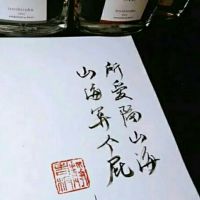 所爱隔山海
山海算个屁